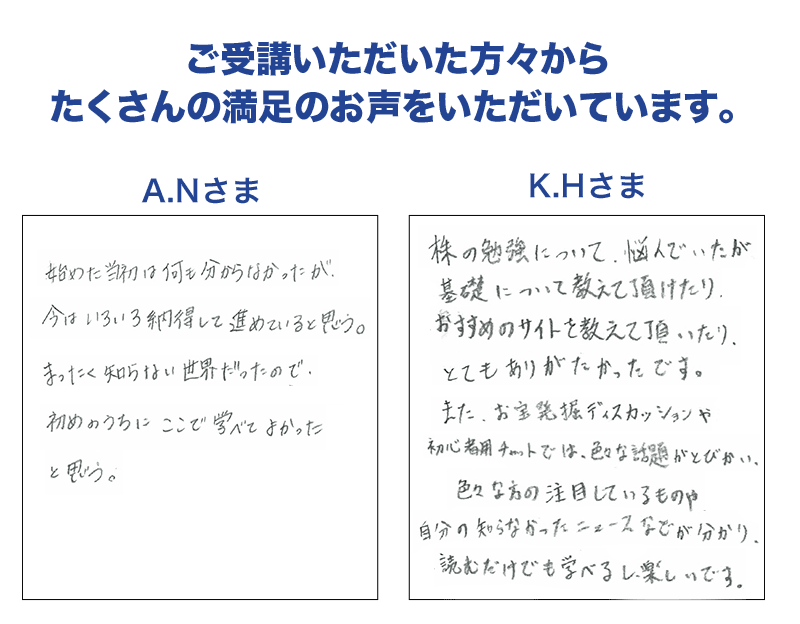 ご受講いただいた方々から
たくさんの満足のお声をいただいています。
A.Nさま
始めた当初は何も分からなかったが、
今はいろいろ納得して進めていると思う。
まったく知らない世界だったので、
初めのうちにここで学べてよかった
と思う。
K.Hさま
株の勉強について、悩んでいたが
基礎について教えて頂けたり、
おすすめのサイトを教えて頂いたり、
とてもありがたかったです。
また、お宝発掘ディスカッションや
初心者用チャットでは、色々な話題がとびかい、
色々な方の注目しているものや
自分の知らなかったニュースなどが分かり、
読むだけでも学べるし、楽しいです。